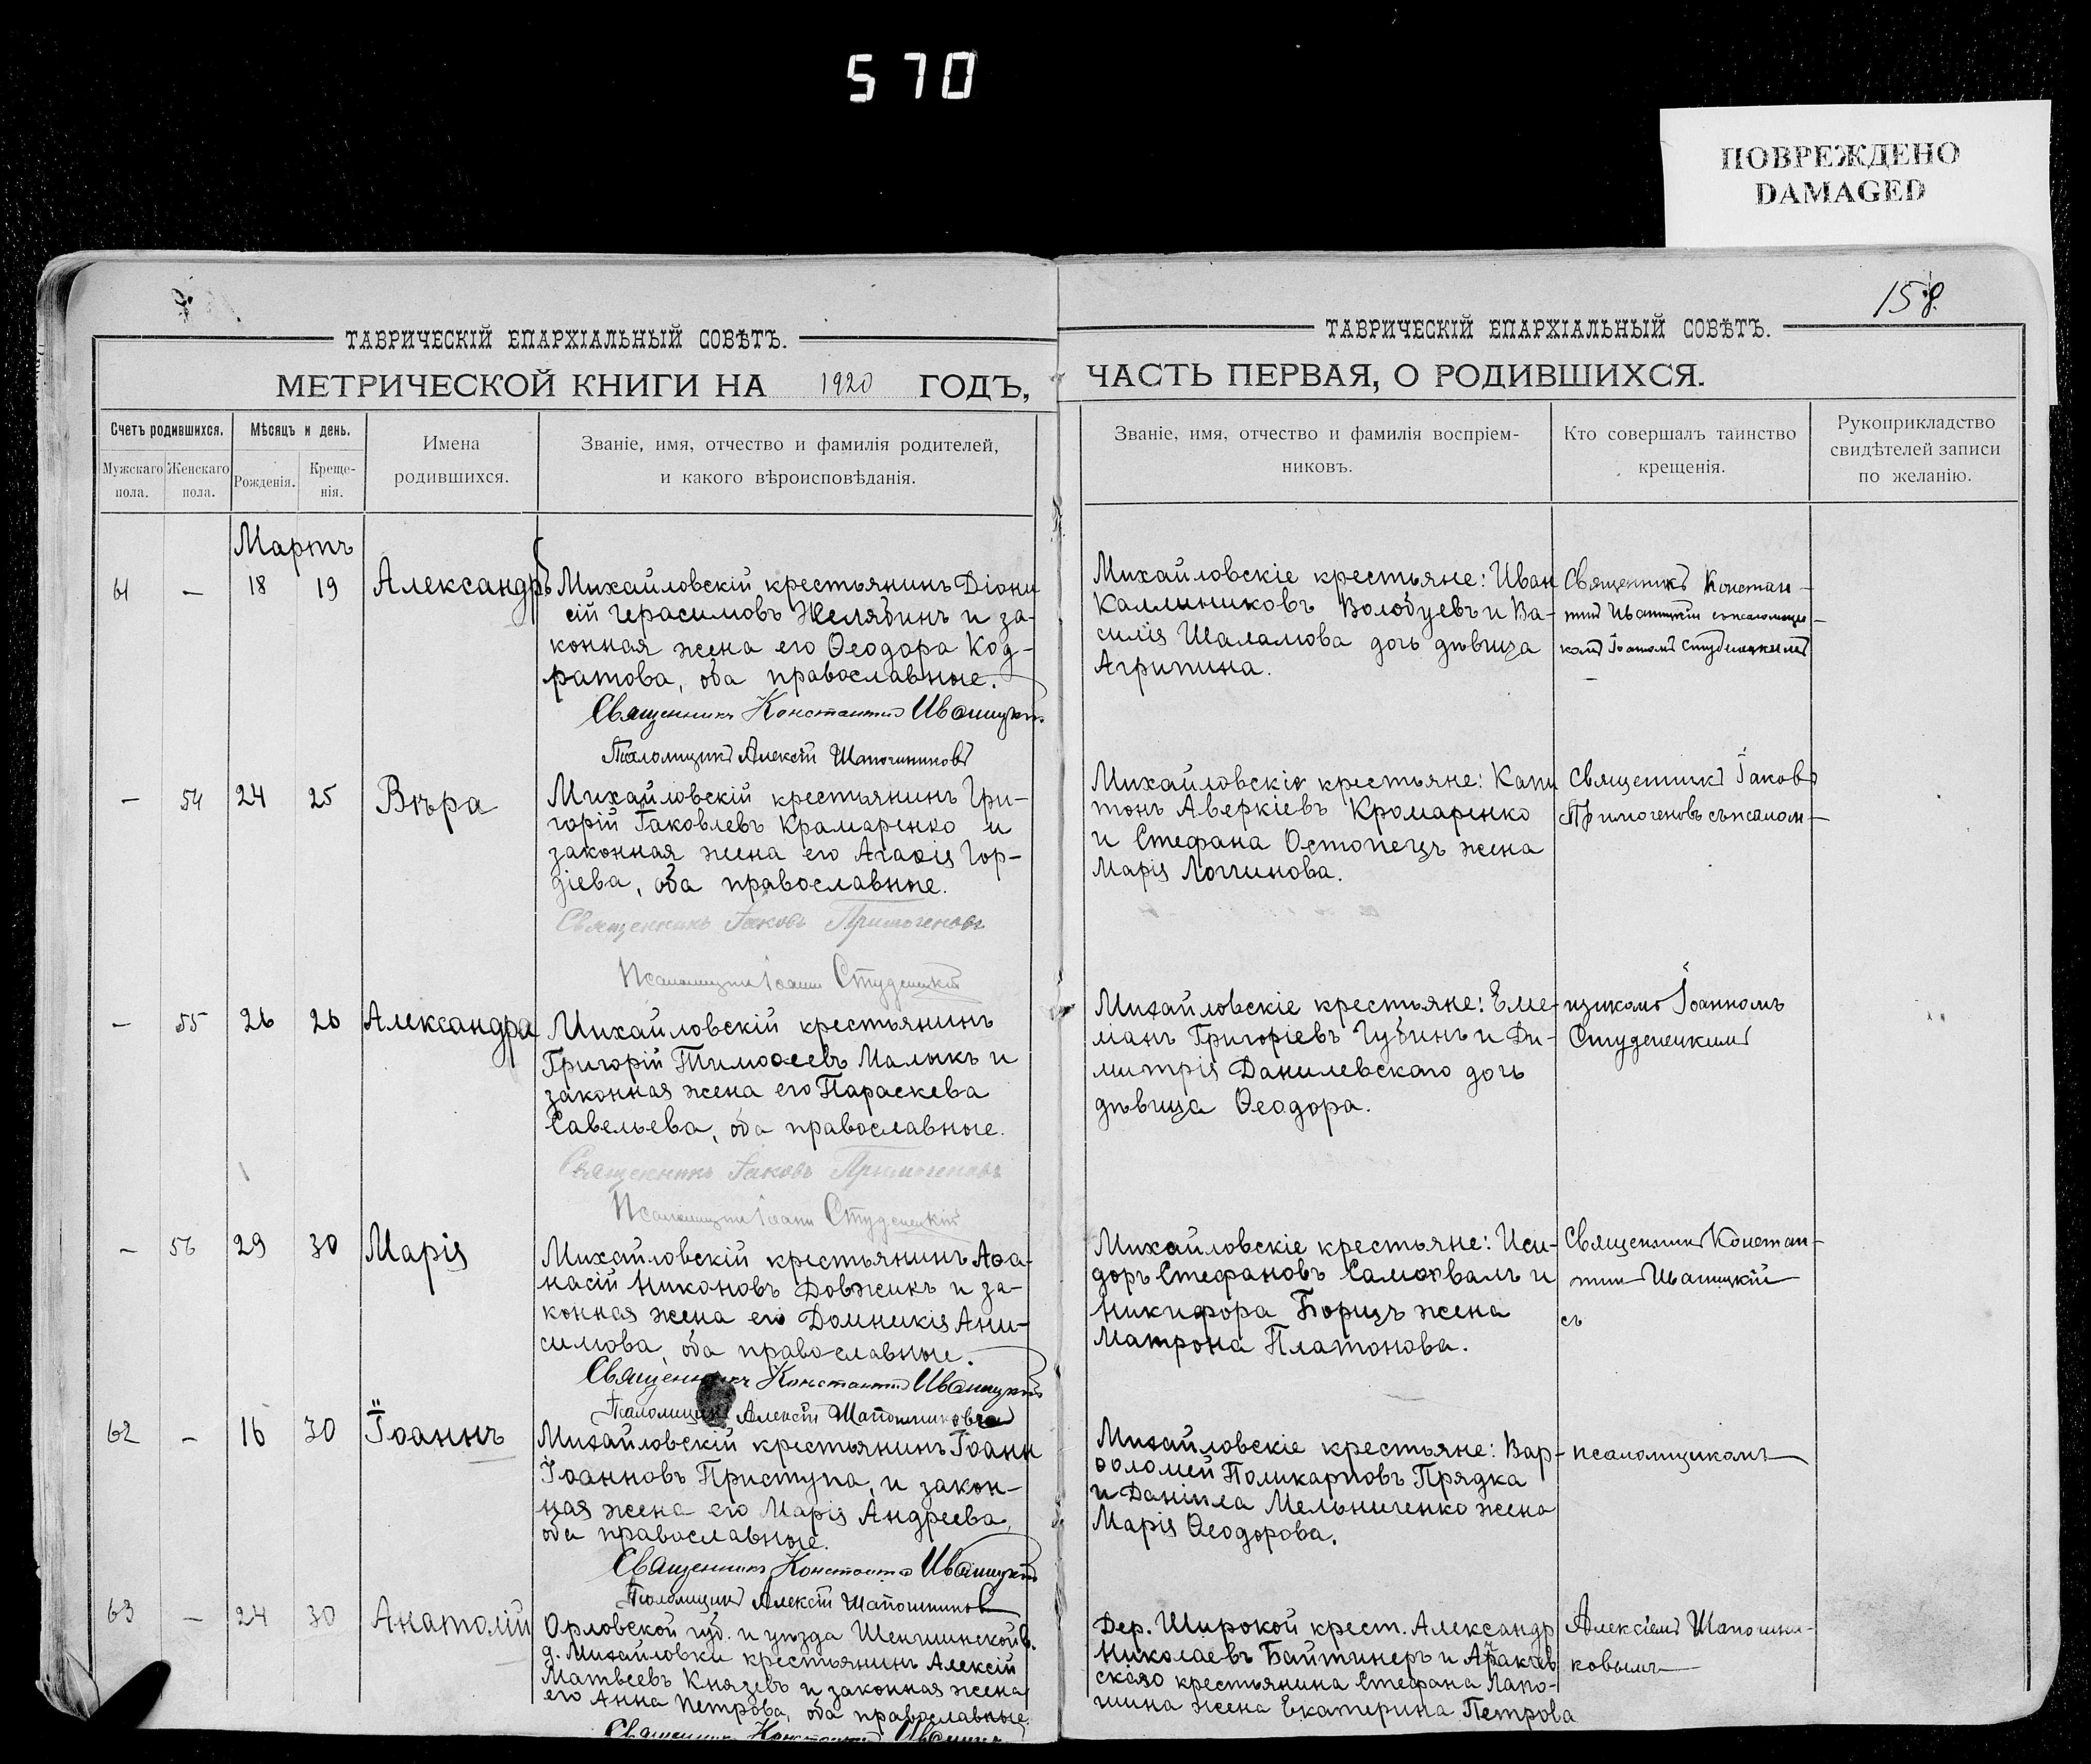 570
ПОВРЕЖДЕНО
DAMAGED
158.
ТАВРИЧЕСКІЙ ЕПАРХІАЛЬНЫЙ СОВѢТЪ.
МЕТРИЧЕСКОЙ КНИГИ НА 1920 ГОДЪ,
Счетъ родившихся.
Мужскаго пола.
Женскаго пола.
Мѣсяцъ и день.
Рожденія.
Креще-
нія.
Имена
родившихся.
Званіе, имя, отчество и фамилія родителей,
и какого вѣроисповѣданія.
Мартъ
61 — 18 19 Александръ
Михайловскій крестьянинъ Діони
сій Герасимовъ Желябинъ и за-
конная жена его Ѳеодора Код-
ратова, оба православные.
Священникъ Константинъ Иваницкій
Псаломщикъ Алексій Шапошниковъ
— 54 24 25 Вѣра
Михайловскій крестьянинъ Гри-
горій Іаковлевъ Крамаренко и
законная жена его Агаѳія Гор-
діева, оба православные.
Священникъ Іаковъ Примогеновъ
Псаломщикъ Іоаннъ Студенецкій
— 55 26 26 Александра
Михайловскій крестьянинъ
Григорій Тимоѳеевъ Малыкъ и
законная жена его Параскева
Савельева, оба православные.
Священникъ Іаковъ Примогеновъ
Псаломщикъ Іоаннъ Студенецкій
— 56 29 30 Марія
Михайловскій крестьянинъ Аѳа-
насій Никоновъ Довжикъ и за-
конная жена его Домникія Ани-
симова, оба православные.
Священникъ Константинъ Иваницкій
Псаломщикъ Алексій Шапошниковъ
62 — 16 30 Іоаннъ
Михайловскій крестьянинъ Іоанн
Іоанновъ Приступа, и закон-
ная жена его Марія Андреева,
оба православные.
Священникъ Константинъ Иваницкій
Псаломщикъ Алексій Шапошниковъ
63 — 24 30 Анатолій
Орловской губ. и уѣзда Шеншинской в.
д. Михайловки крестьянинъ Алексій
Матвеевъ Князевъ и законная жена
его Анна Петрова, оба православные.
Священникъ Константинъ
ТАВРИЧЕСКІЙ ЕПАРХІАЛЬНЫЙ СОВѢТЪ.
ЧАСТЬ ПЕРВАЯ, О РОДИВШИХСЯ.
Званіе, имя, отчество и фамилія воспріем-
никовъ.
Кто совершалъ таинство
крещенія.
Рукоприкладство
свидѣтелей записи
по желанію.
Михайловскіе крестьяне: Иван
Каллиниковъ Волобуевъ и Ва-
силія Шаламова дочь дѣвица
Агрипина.
Священникъ Констан-
тинъ Иваницкій съ псаломщи-
комъ Іоанномъ Студенецкимъ
Михайловскіе крестьяне: Капи
тонъ Аверкіевъ Кромаренко
и Стефана Остопецъ жена
Марія Логинова.
Священникъ Іаковъ
Примогеновъ съ псалом-
Михайловскіе крестьяне: Еме-
ліанъ Григоріевъ Губинъ и Ди-
митрія Данилевскаго дочь
дѣвица Ѳеодора.
щикомъ Іоанномъ
Студенецкимъ
Михайловскіе крестьяне: Иси-
доръ Стефановъ Самохвалъ и
Никифора Борщъ жена
Матрона Платонова.
Священникъ Констан-
тинъ Иваницкій
съ
Михайловскіе крестьяне: Вар-
ѳоломей Поликарповъ Прядка
и Даніила Мельниченко жена
Марія Ѳеодорова.
псаломщикомъ
Дер. Широкой крест. Александр
Николаевъ Байтингеръ и
скаго крестьянина Стефана Лапо-
шина жена Екатерина Петрова
Алексіемъ Шапошни-
ковымъ